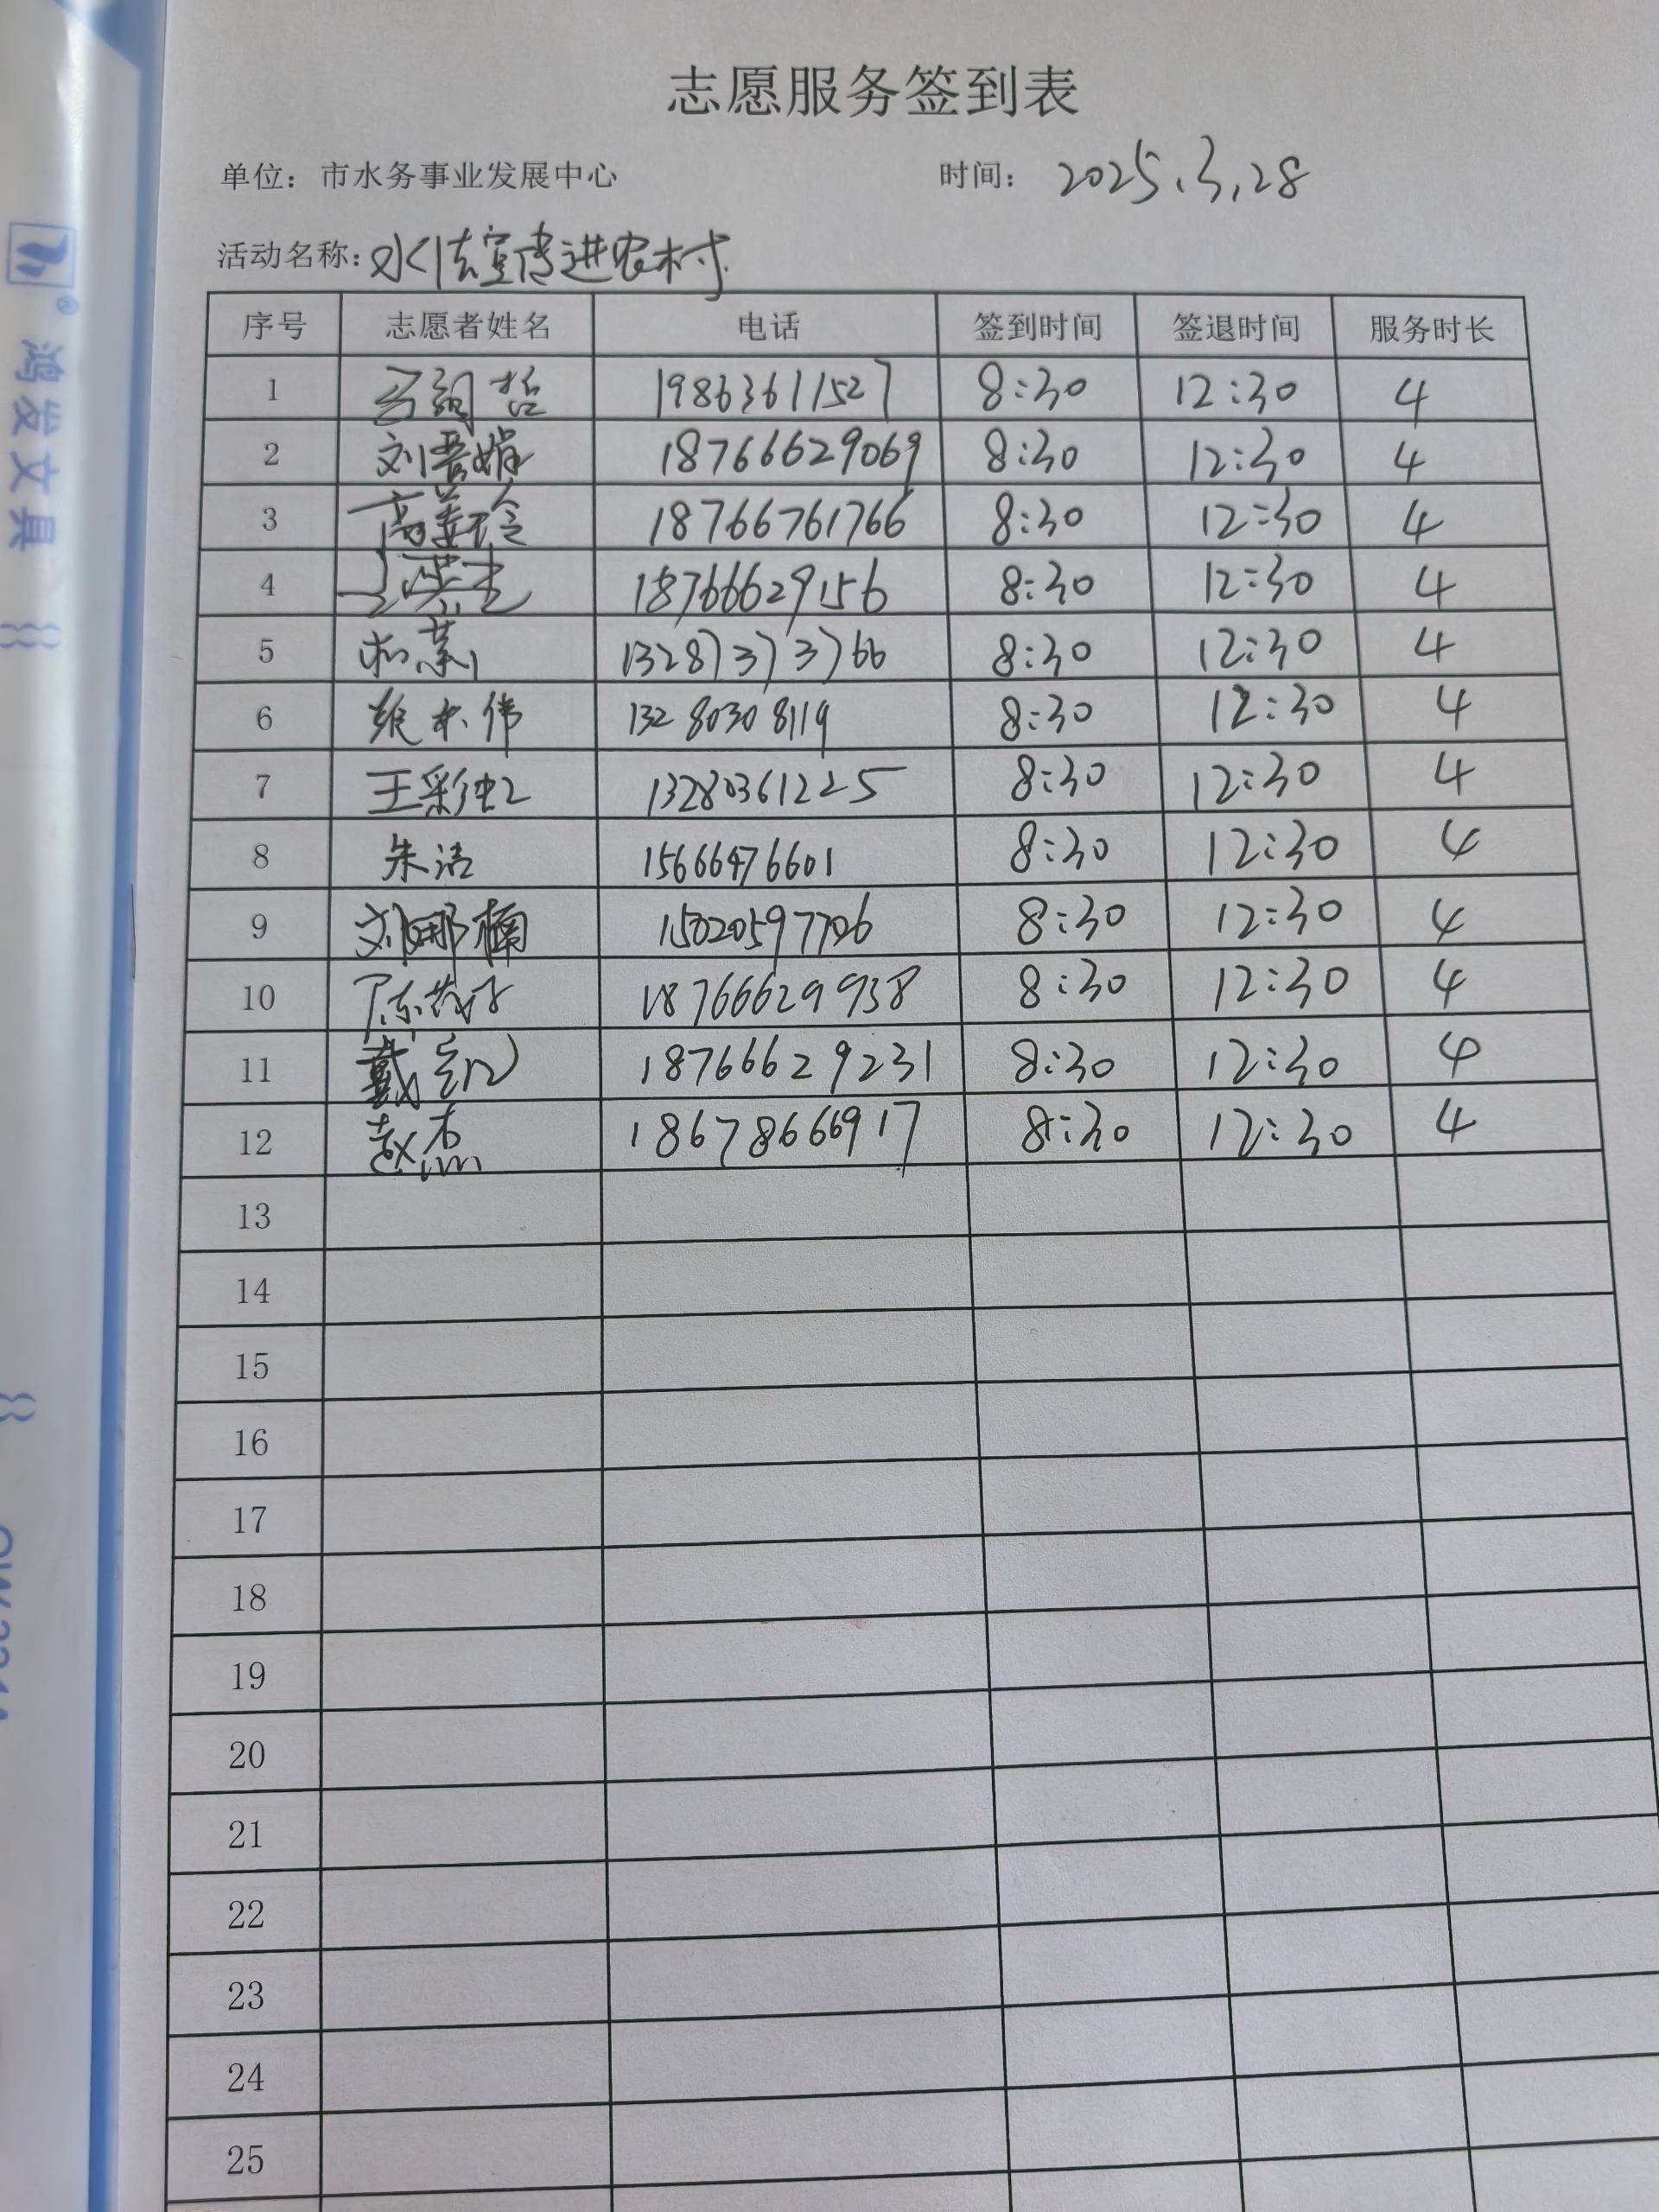 志愿服务签到表
单位：市水务事业发展中心 时间：2025.3.28
活动名称：水法宣传进农村
序号 志愿者姓名 电话 签到时间 签退时间 服务时长
1 19863611527 8:30 12:30 4
2 刘晋娟 18766629069 8:30 12:30 4
3 高美玲 18766761766 8:30 12:30 4
4 18766629156 8:30 12:30 4
5 13287373766 8:30 12:30 4
6 13280308119 8:30 12:30 4
7 王彩虹 13280361225 8:30 12:30 4
8 朱洁 15666476601 8:30 12:30 4
9 刘娜楠 15020597706 8:30 12:30 4
10 18766629938 8:30 12:30 4
11 戴 18766629231 8:30 12:30 4
12 赵杰 18678666917 8:30 12:30 4
13
14
15
16
17
18
19
20
21
22
23
24
25
鸿发文具